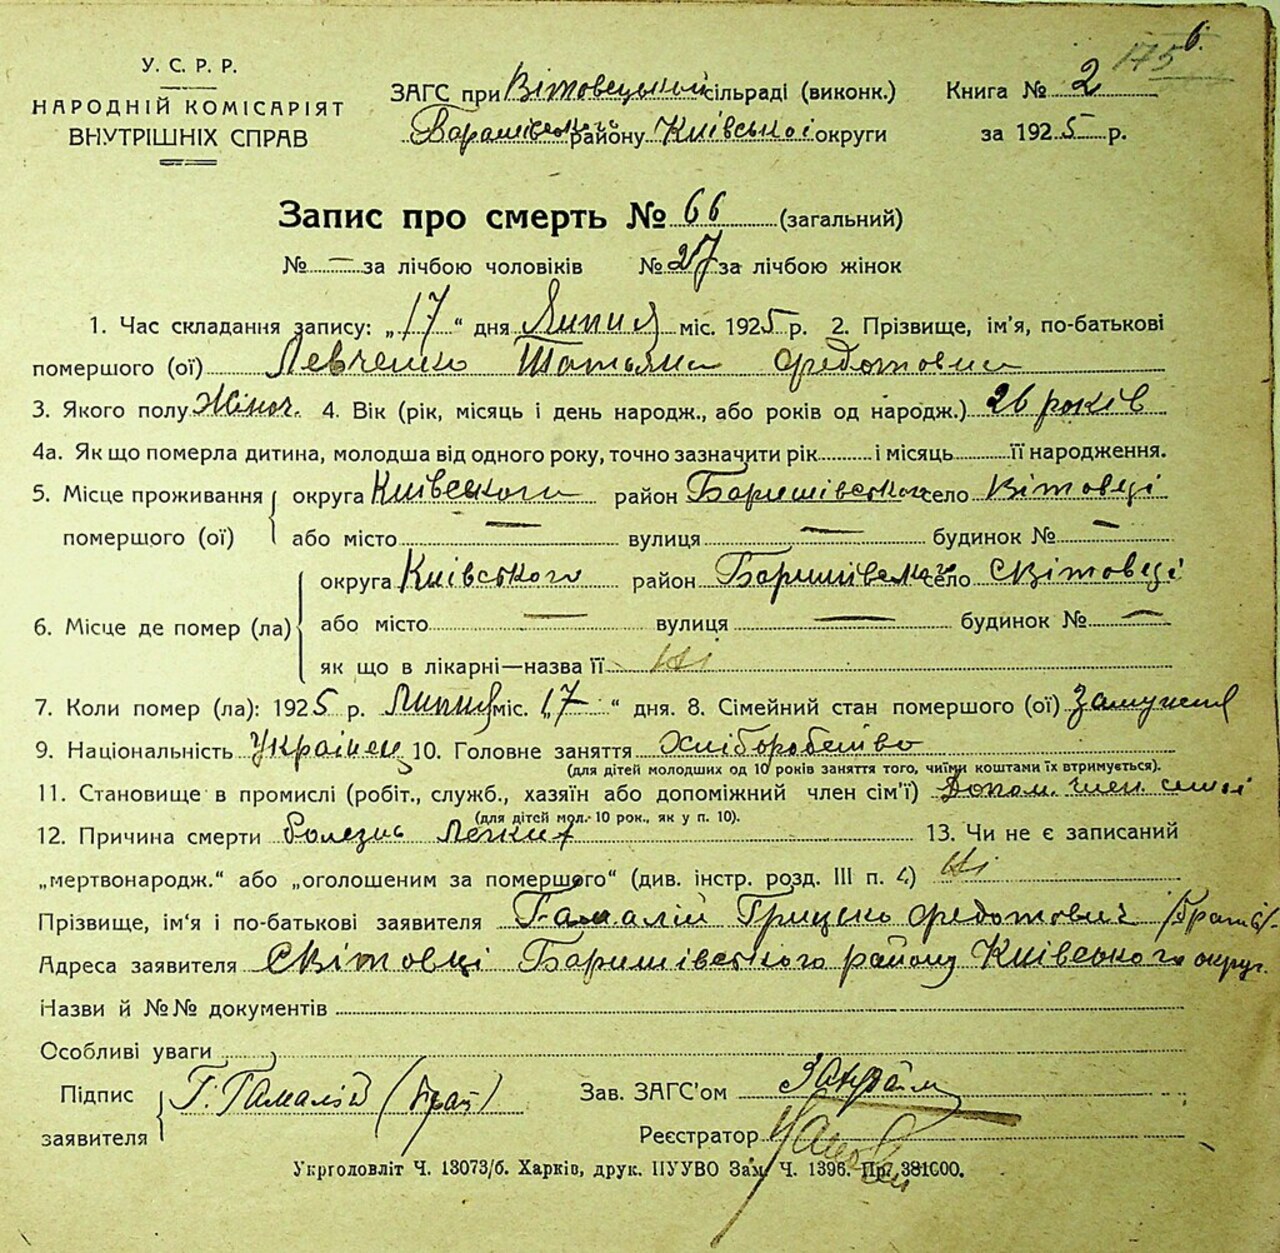 175 6.
У. С. Р. Р.
НАРОДНІЙ КОМІСАРІЯТ
ВНУТРІШНІХ СПРАВ
ЗАГС при Вітовецькій сільраді (виконк.)
Баришівського району Київської округи
Книга № 2
за 1925 р.
Запис про смерть № 66 (загальний)
№ — за лічбою чоловіків № 27 за лічбою жінок
1. Час складання запису: „17“ дня Липня міс. 1925 р. 2. Прізвище, ім'я, по-батькові
помершого (ої) Левченко Татьяна Федотовна
3. Якого полу Жіноч. 4. Вік (рік, місяць і день народж., або років од народж.) 26 років
4а. Як що померла дитина, молодша від одного року, точно зазначити рік і місяць її народження.
5. Місце проживання помершого (ої) округа Київського район Баришівського село Вітовці
або місто — вулиця — будинок № —
6. Місце де помер (ла) округа Київського район Баришівського село Світовці
або місто — вулиця — будинок № —
як що в лікарні—назва її Ні
7. Коли помер (ла): 1925 р. Липня міс. „17“ дня. 8. Сімейний стан помершого (ої) Замужня
9. Національність Українец 10. Головне заняття Хліборобство
(для дітей молодших од 10 років заняття того, чиїми коштами їх втримується).
11. Становище в промислі (робіт., служб., хазяїн або допоміжний член сім'ї) Допом. член сімї
(для дітей мол. 10 рок., як у п. 10).
12. Причина смерти болезнь Легких 13. Чи не є записаний
„мертвонародж.“ або „оголошеним за помершого“ (див. інстр. розд. III п. 4) Ні
Прізвище, ім'я і по-батькові заявителя Гамалій Грицько Федотович
Адреса заявителя Світовці Баришівського району Київського округ.
Назви й №№ документів
Особливі уваги
Підпис заявителя Г. Гамалій (брат)
Зав. ЗАГС'ом
Реєстратор
Укрголовліт Ч. 13073/б. Харків, друк. ПУУВО Зам. Ч. 1396. Пр. 381000.